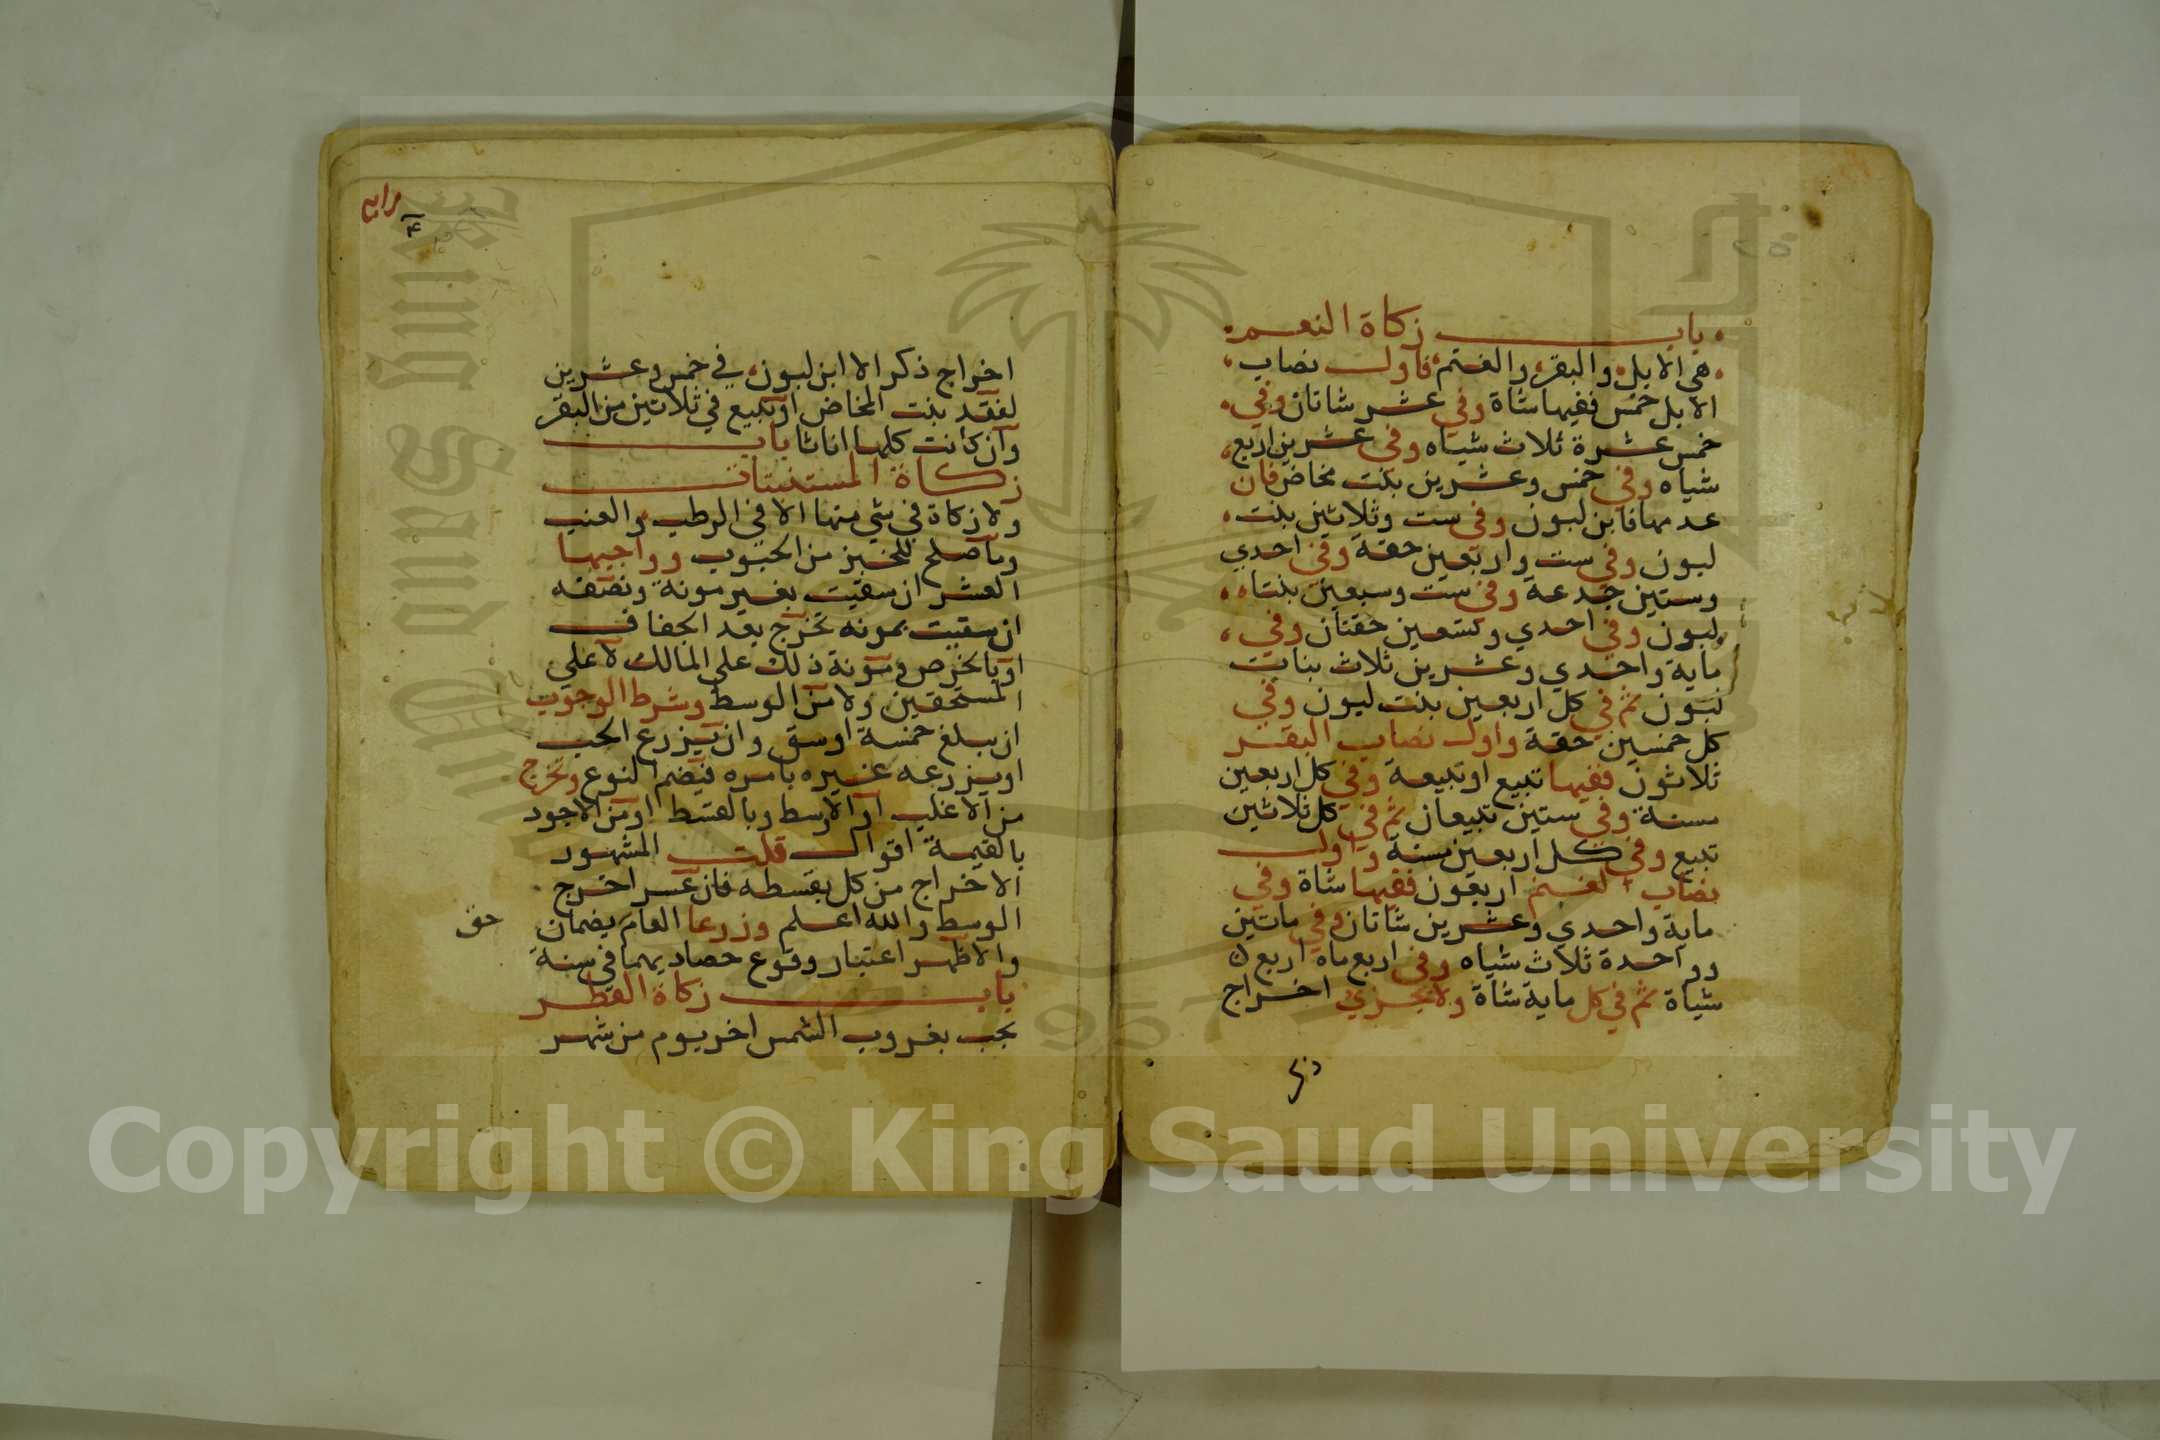 باب زكاة النعم
هي الابل والبقر والغنم فاول نصاب
الابل خمس ففيها شاة وفي عشر شاتان وفي
خمس عشرة ثلاث شياه وفي عشرين اربع
شياه وفي خمس وعشرين بنت مخاض فان
عدمها فابن لبون وفي ست وثلاثين بنت
لبون وفي ست واربعين حقة وفي احدي
وستين جدعة وفي ست وسبعين بنتاه
لبون وفي احدي وتسعين حقتان وفي
ماية واحدي وعشرين ثلاث بنات
لبون ثم في كل اربعين بنت لبون وفي
كل خمسين حقة واول نصاب البقر
ثلاثون ففيها تبيع او تبيعة وفي كل اربعين
مسنة وفي ستين تبيعان ثم في كل ثلاثين
تبيع وفي كل اربعين مسنة واول
نصاب الغنم اربعون ففيها شاة وفي
ماية واحدي وعشرين شاتان وفي ماتين
وواحدة ثلاث شياه وفي اربع ماه اربع
شياة ثم في كل ماية شاة ولا يجزي اخراج
ذكر
رابع
٤
اخراج ذكر الا ابن لبون في خمس وعشرين
لفقد بنت المخاض او تبيع في ثلاثين من البقر
وان كانت كلها اناثا باب
زكاة المستنبتات
ولا زكاة في شي منها الا في الرطب والعنب
وما صلح للخبز من الحبوب وواجبها
العشر ان سقيت بغير مونة ونصفه
ان سقيت بمونه تخرج بعد الجفاف
او بالخرص ومونة ذلك علي المالك لا علي
المستحقين ولا من الوسط وشرط الوجوب
ان يبلغ خمسة اوسق وان يزرع الحب
او يزرعه غيره بامره فيضم النوع وتخرج
من الاغلب او الاوسط وبالقسط او من الاجود
بالقيمة اقوال قلت المشهور
الاخراج من كل بقسطه فان عسر اخرج
الوسط والله اعلم وزرعا العام يضمان
والاظهر اعتبار وقوع حصاديهما في سنة
باب زكاة الفطر
يجب بغروب الشمس اخر يوم من شهر
Copyright © King Saud University
King Saud University
1957